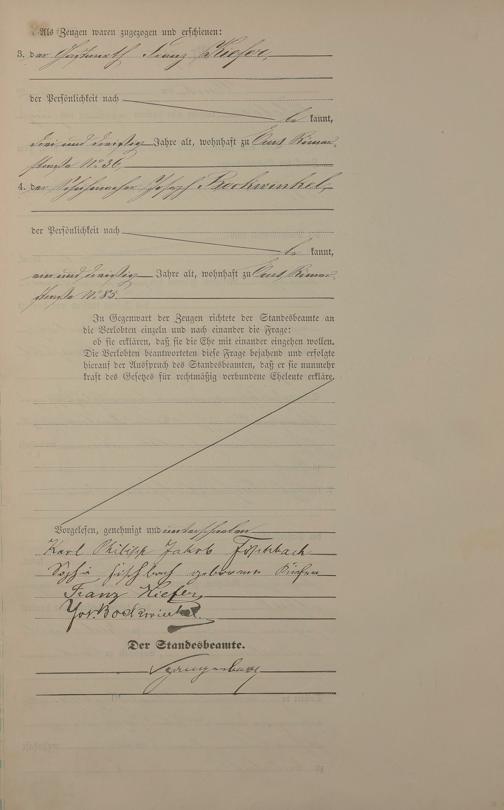 Als Zeugen waren zugezogen und erschienen:
3. der Gastwirth Franz Kiefer,
der Persönlichkeit nach
be kannt,
drei und dreißig Jahre alt, wohnhaft zu Ems Römer-
straße No 36,
4. der Schuhmacher Joseph Bockwinkel,
der Persönlichkeit nach
be kannt,
ein und dreißig Jahre alt, wohnhaft zu Ems Römer-
straße No 85.
In Gegenwart der Zeugen richtete der Standesbeamte an
die Verlobten einzeln und nach einander die Frage:
ob sie erklären, daß sie die Ehe mit einander eingehen wollen.
Die Verlobten beantworteten diese Frage bejahend und erfolgte
hierauf der Ausspruch des Standesbeamten, daß er sie nunmehr
kraft des Gesetzes für rechtmäßig verbundene Eheleute erkläre.
Vorgelesen, genehmigt und unterschrieben
Karl Philipp Jakob Fischbach
Fischbach geborene
Franz Kiefer
Jos. Bockwinkel
Der Standesbeamte.